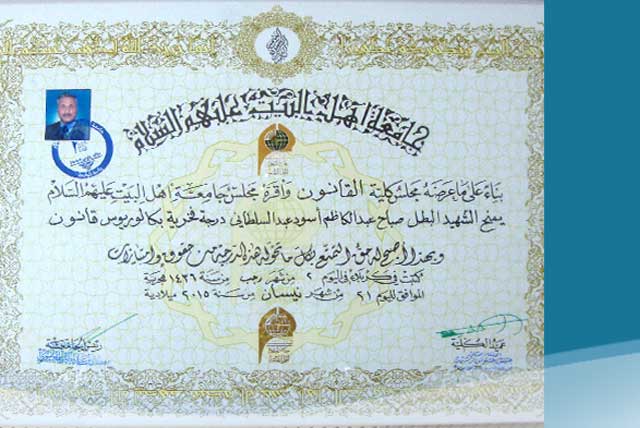 جامعة اهل البيت عليهم السلام
بناءً على ما عرضه مجلس كلية القانون واقره مجلس جامعة اهل البيت عليهم السلام
يمنح الشهيد البطل صباح عبدالكاظم أسود عبد السلطاني درجة فخرية بكالوريوس قانون
وبهذا أصبح له حق التمتع بكل ما تخوله هذه الدرجة من حقوق وامتيازات
كتبت في كربلاء في اليوم ٢ من شهر رجب من سنة ١٤٣٦ هجرية
الموافق لليوم ٢١ من شهر نيسان من سنة ٢٠١٥ ميلادية
عميد الكلية
رئيس الجامعة